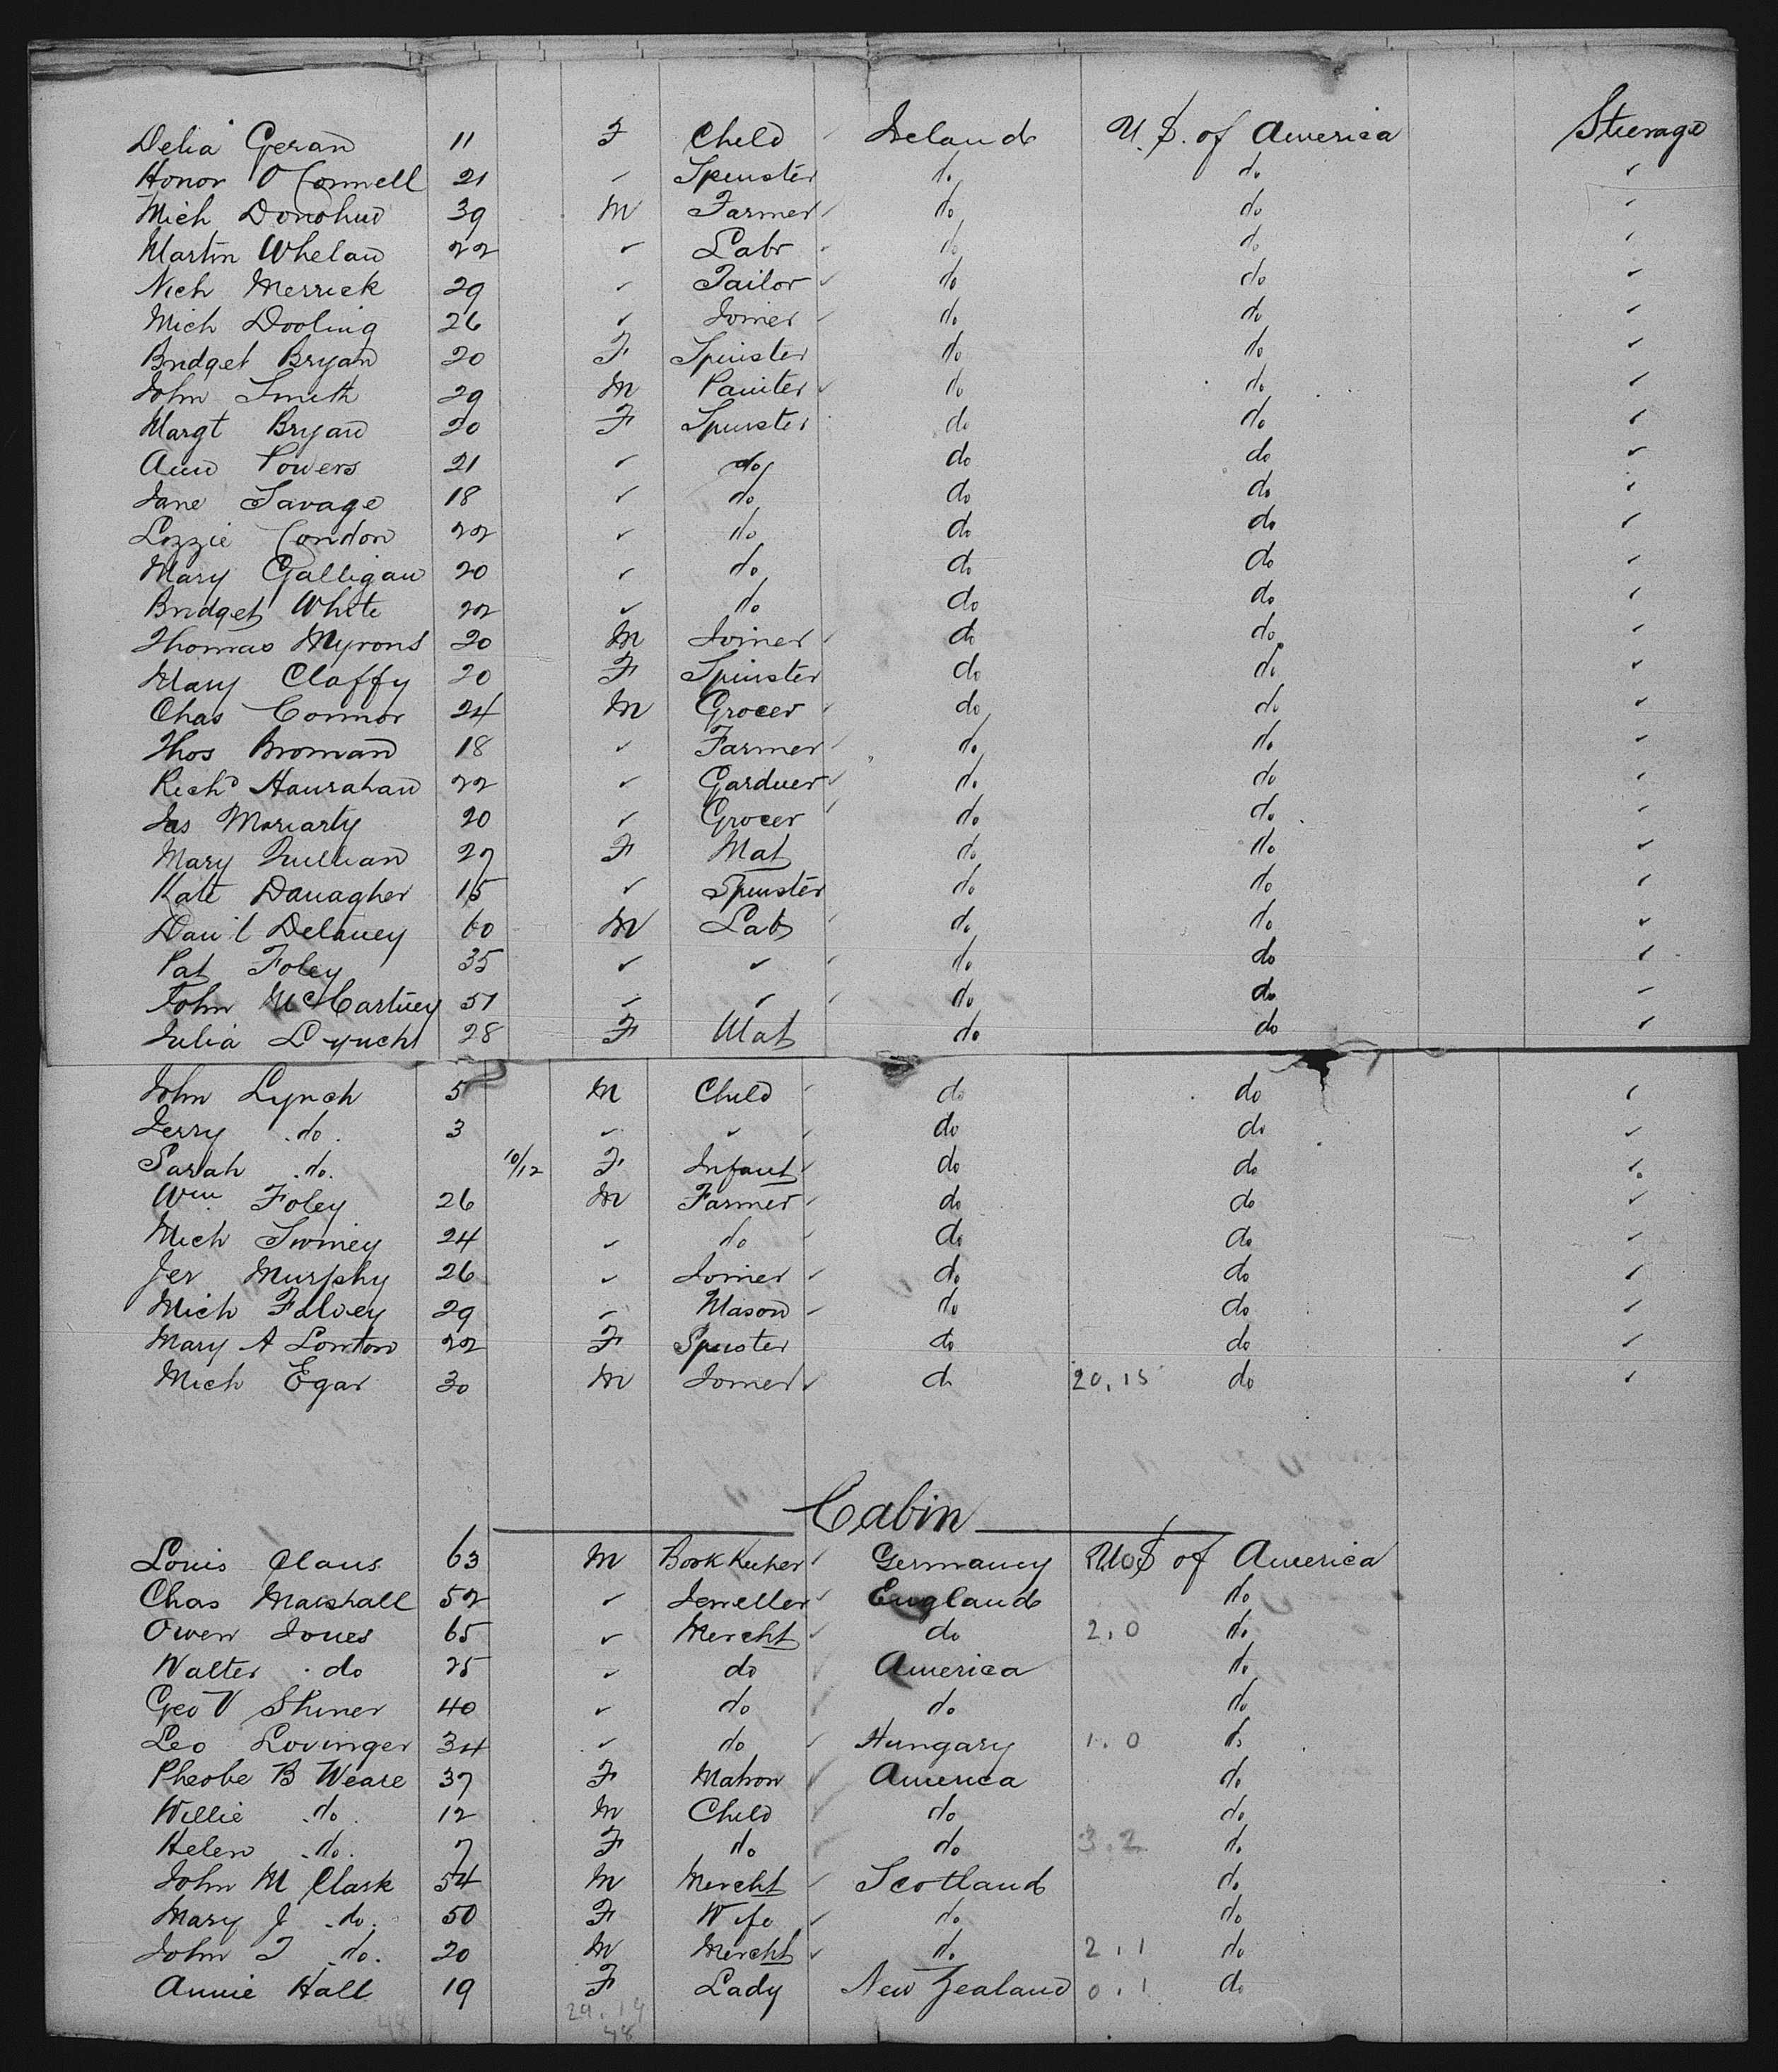 Delia Geran 11 F Child Ireland U.S. of America Steerage
Honor O Connell 21 ✓ Spinster do do ✓
Mich Donohue 39 M Farmer do do ✓
Martin Whelan 22 ✓ Labr do do ✓
Nich Merrick 29 ✓ Tailor do do ✓
Mich Dooling 26 ✓ Joiner do do ✓
Bridget Bryan 20 F Spinster do do ✓
John Smith 29 M Painter do do ✓
Margt Bryan 20 F Spinster do do ✓
Ann Powers 21 ✓ do do do ✓
Jane Savage 18 ✓ do do do ✓
Lizzie Condon 22 ✓ do do do ✓
Mary Galligan 20 ✓ do do do ✓
Bridget White 22 ✓ do do do ✓
Thomas Myrons 20 M Joiner do do ✓
Mary Claffy 20 F Spinster do do ✓
Chas Connor 24 M Grocer do do ✓
Thos Broman 18 ✓ Farmer do do ✓
Richd Hanrahan 22 ✓ Garduer do do ✓
Jas Moriarty 20 ✓ Grocer do do ✓
Mary Sullivan 27 F Mat do do ✓
Kate Danagher 15 ✓ Spinster do do ✓
Dan'l Delaney 60 M Lab do do ✓
Pat Foley 35 ✓ ✓ do do ✓
John McCartney 51 ✓ ✓ do do ✓
Julia Lynch 28 F Mat do do ✓
John Lynch 5 M Child do do ✓
Jerry do 3 ✓ ✓ do do ✓
Sarah do 10/12 F Infant do do ✓
Wm Foley 26 M Farmer do do ✓
Mich Swiney 24 ✓ do do do ✓
Jer Murphy 26 ✓ Joiner do do ✓
Mich 29 ✓ Mason do do ✓
Mary A 22 F Spinster do do ✓
Mich Egar 30 M Joiner do 20.15 do ✓
Cabin
Louis Claus 63 M Book Keeper Germany U.S of America
Chas Marshall 52 ✓ Jeweller England do
Owen Jones 65 ✓ Mercht do 2.0 do
Walter do 25 ✓ do America do
Geo V Skiner 40 ✓ do do do
Leo Lovinger 34 ✓ do Hungary 1.0 do
Pheobe B Weare 37 F Matron America do
Willie do 12 M Child do do
Helen do 7 F do do 3.2 do
John M Clark 54 M Mercht Scotland do
Mary J do 50 F Wife do do
John T do 20 M Mercht do 2.1 do
Annie Hall 19 F Lady New Zealand 0.1 do
29.19
48 48